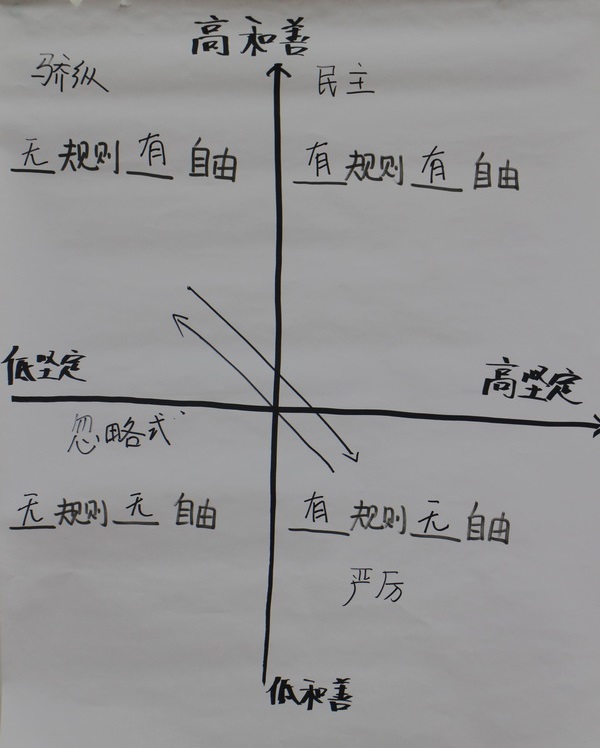 高和善
骄纵
民主
无规则有自由
有规则有自由
低坚定
高坚定
忽略式
无规则无自由
有规则无自由
严厉
低和善